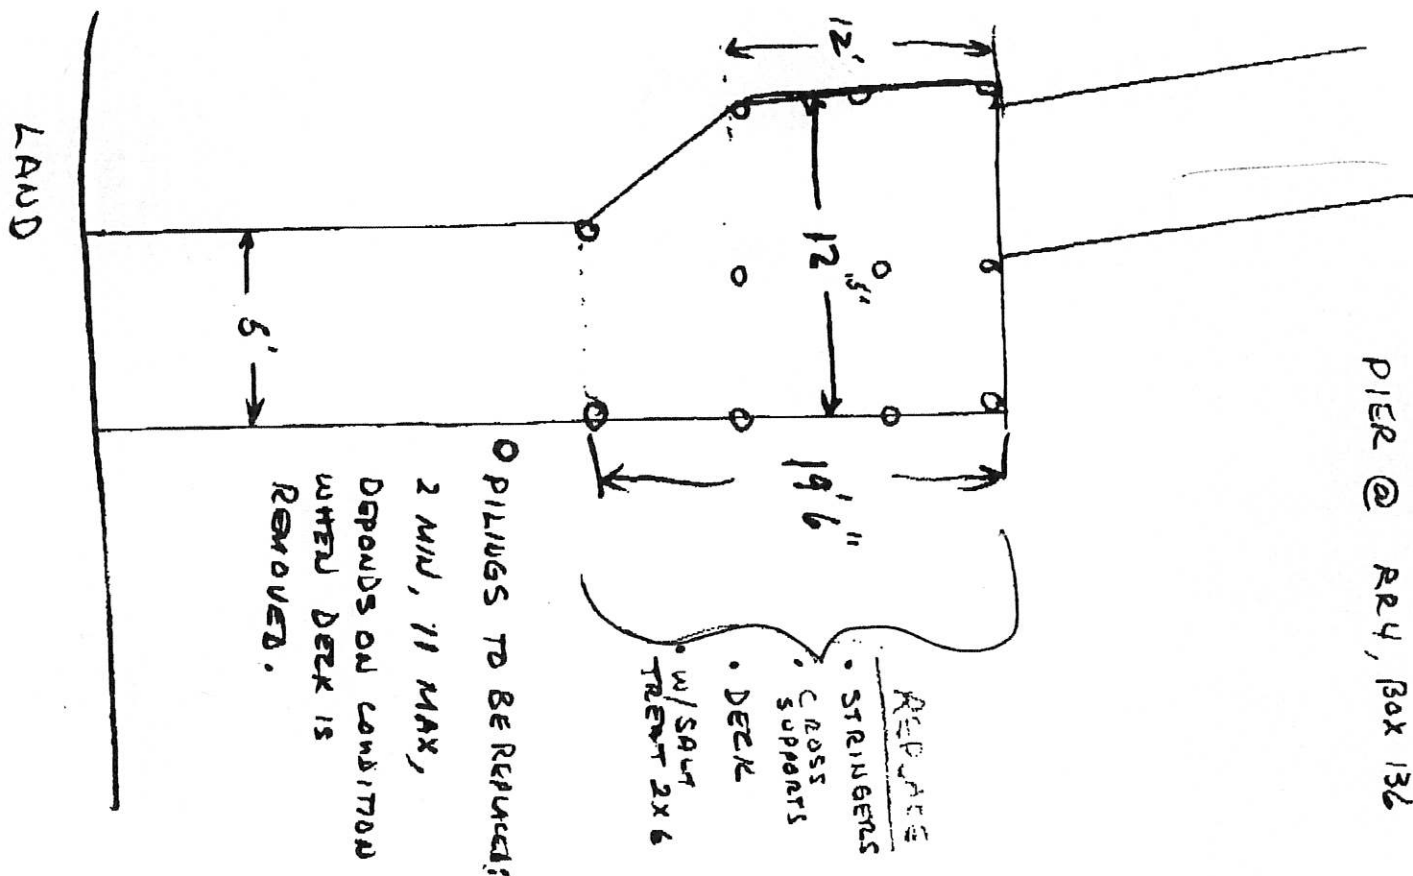 PIER @ RR4, BOX 136
12'
12'
19' 6"
LAND
REPLACE
• STRINGERS
• CROSS
SUPPORTS
• DECK
• W/SALT
TREAT 2X6
O PILINGS TO BE REPLACED:
2 MIN, 11 MAX,
DEPONDS ON CONDITION
WHEN DECK IS
REMOVED.